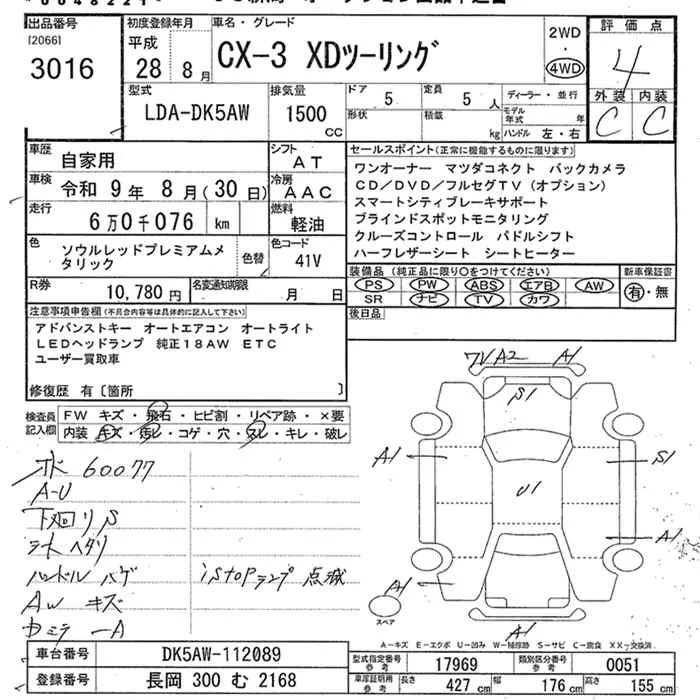 出品番号 初度登録年月 車名・グレード 2WD 評価点
[2066] 平成 ・
3016 28 年 8 月 CX-3 XDツーリング 4WD 4
型式 排気量 ドア 5 定員 5 人 ディーラー・並行 外装 内装
LDA-DK5AW 1500 CC 形状 積載 kg モデル年式 年 ハンドル 左・右 C C
車歴 自家用 シフト AT セールスポイント(正常に機能するものに限ります)
車検 令和 9 年 8 月(30 日) 冷房 AAC ワンオーナー マツダコネクト バックカメラ
CD/DVD/フルセグTV(オプション)
走行 6万0千076 km 燃料 軽油 スマートシティブレーキサポート
ブラインドスポットモニタリング
色 ソウルレッドプレミアムメタリック 色替 色コード 41V クルーズコントロール パドルシフト
ハーフレザーシート シートヒーター
R券 10,780 円 名変通知期限 月 日 装備品(純正品に限り○をつけてください) 新車保証書
PS PW ABS エアB AW 有・無
SR ナビ TV カワ
注意事項申告欄(不具合内容等は具体的に記入して下さい) 後日品
アドバンストキー オートエアコン オートライト
LEDヘッドランプ 純正18AW ETC
ユーザー買取車
修復歴 有〔箇所 〕
検査員記入欄 FW キズ・飛石・ヒビ割・リペア跡・×要
内装 キズ・汚レ・コゲ・穴・スレ・キレ・破レ
A2 A1
S1
A1 S1
U1
A1
A1
A1
60077
A-U
下廻り S
シート ヘタリ
ハンドル ハゲ iSTOPランプ 点滅
AW キズ
スペア
A-キズ E-エクボ U-凹み W-補修跡 S-サビ C-腐食 XX-交換済
車台番号 DK5AW-112089 型式指定番号 参考 17969 類別区分番号 参考 0051
登録番号 長岡 300 む 2168 車庫証明用 参考 長さ 427 cm 幅 176 cm 高さ 155 cm